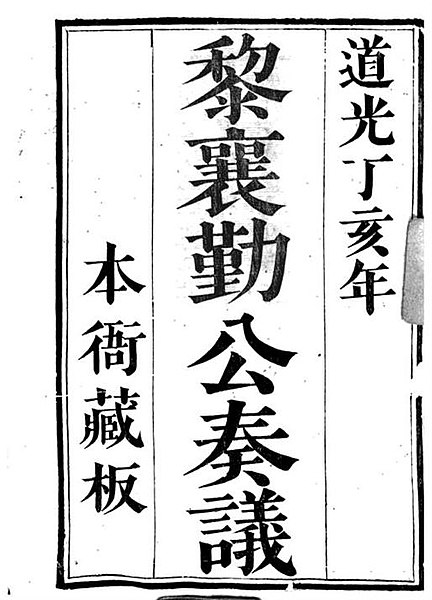 道光丁亥年
黎襄勤公奏議
本衙藏板